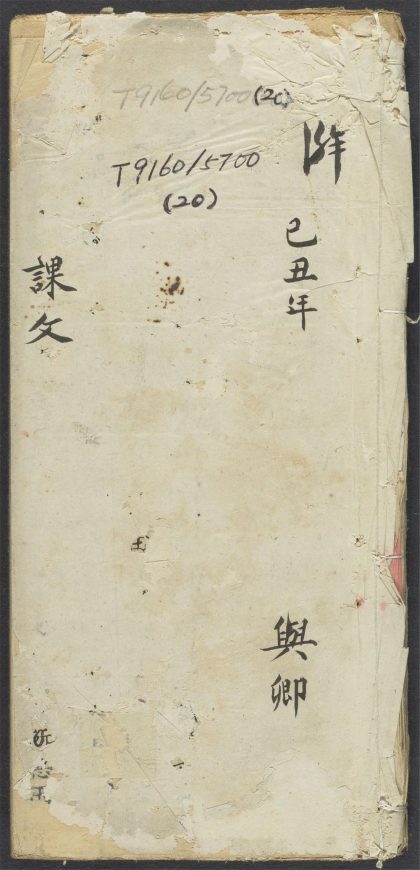 T9160/5700(20)
T9160/5700
(20)
己丑年
與卿
課文
玉